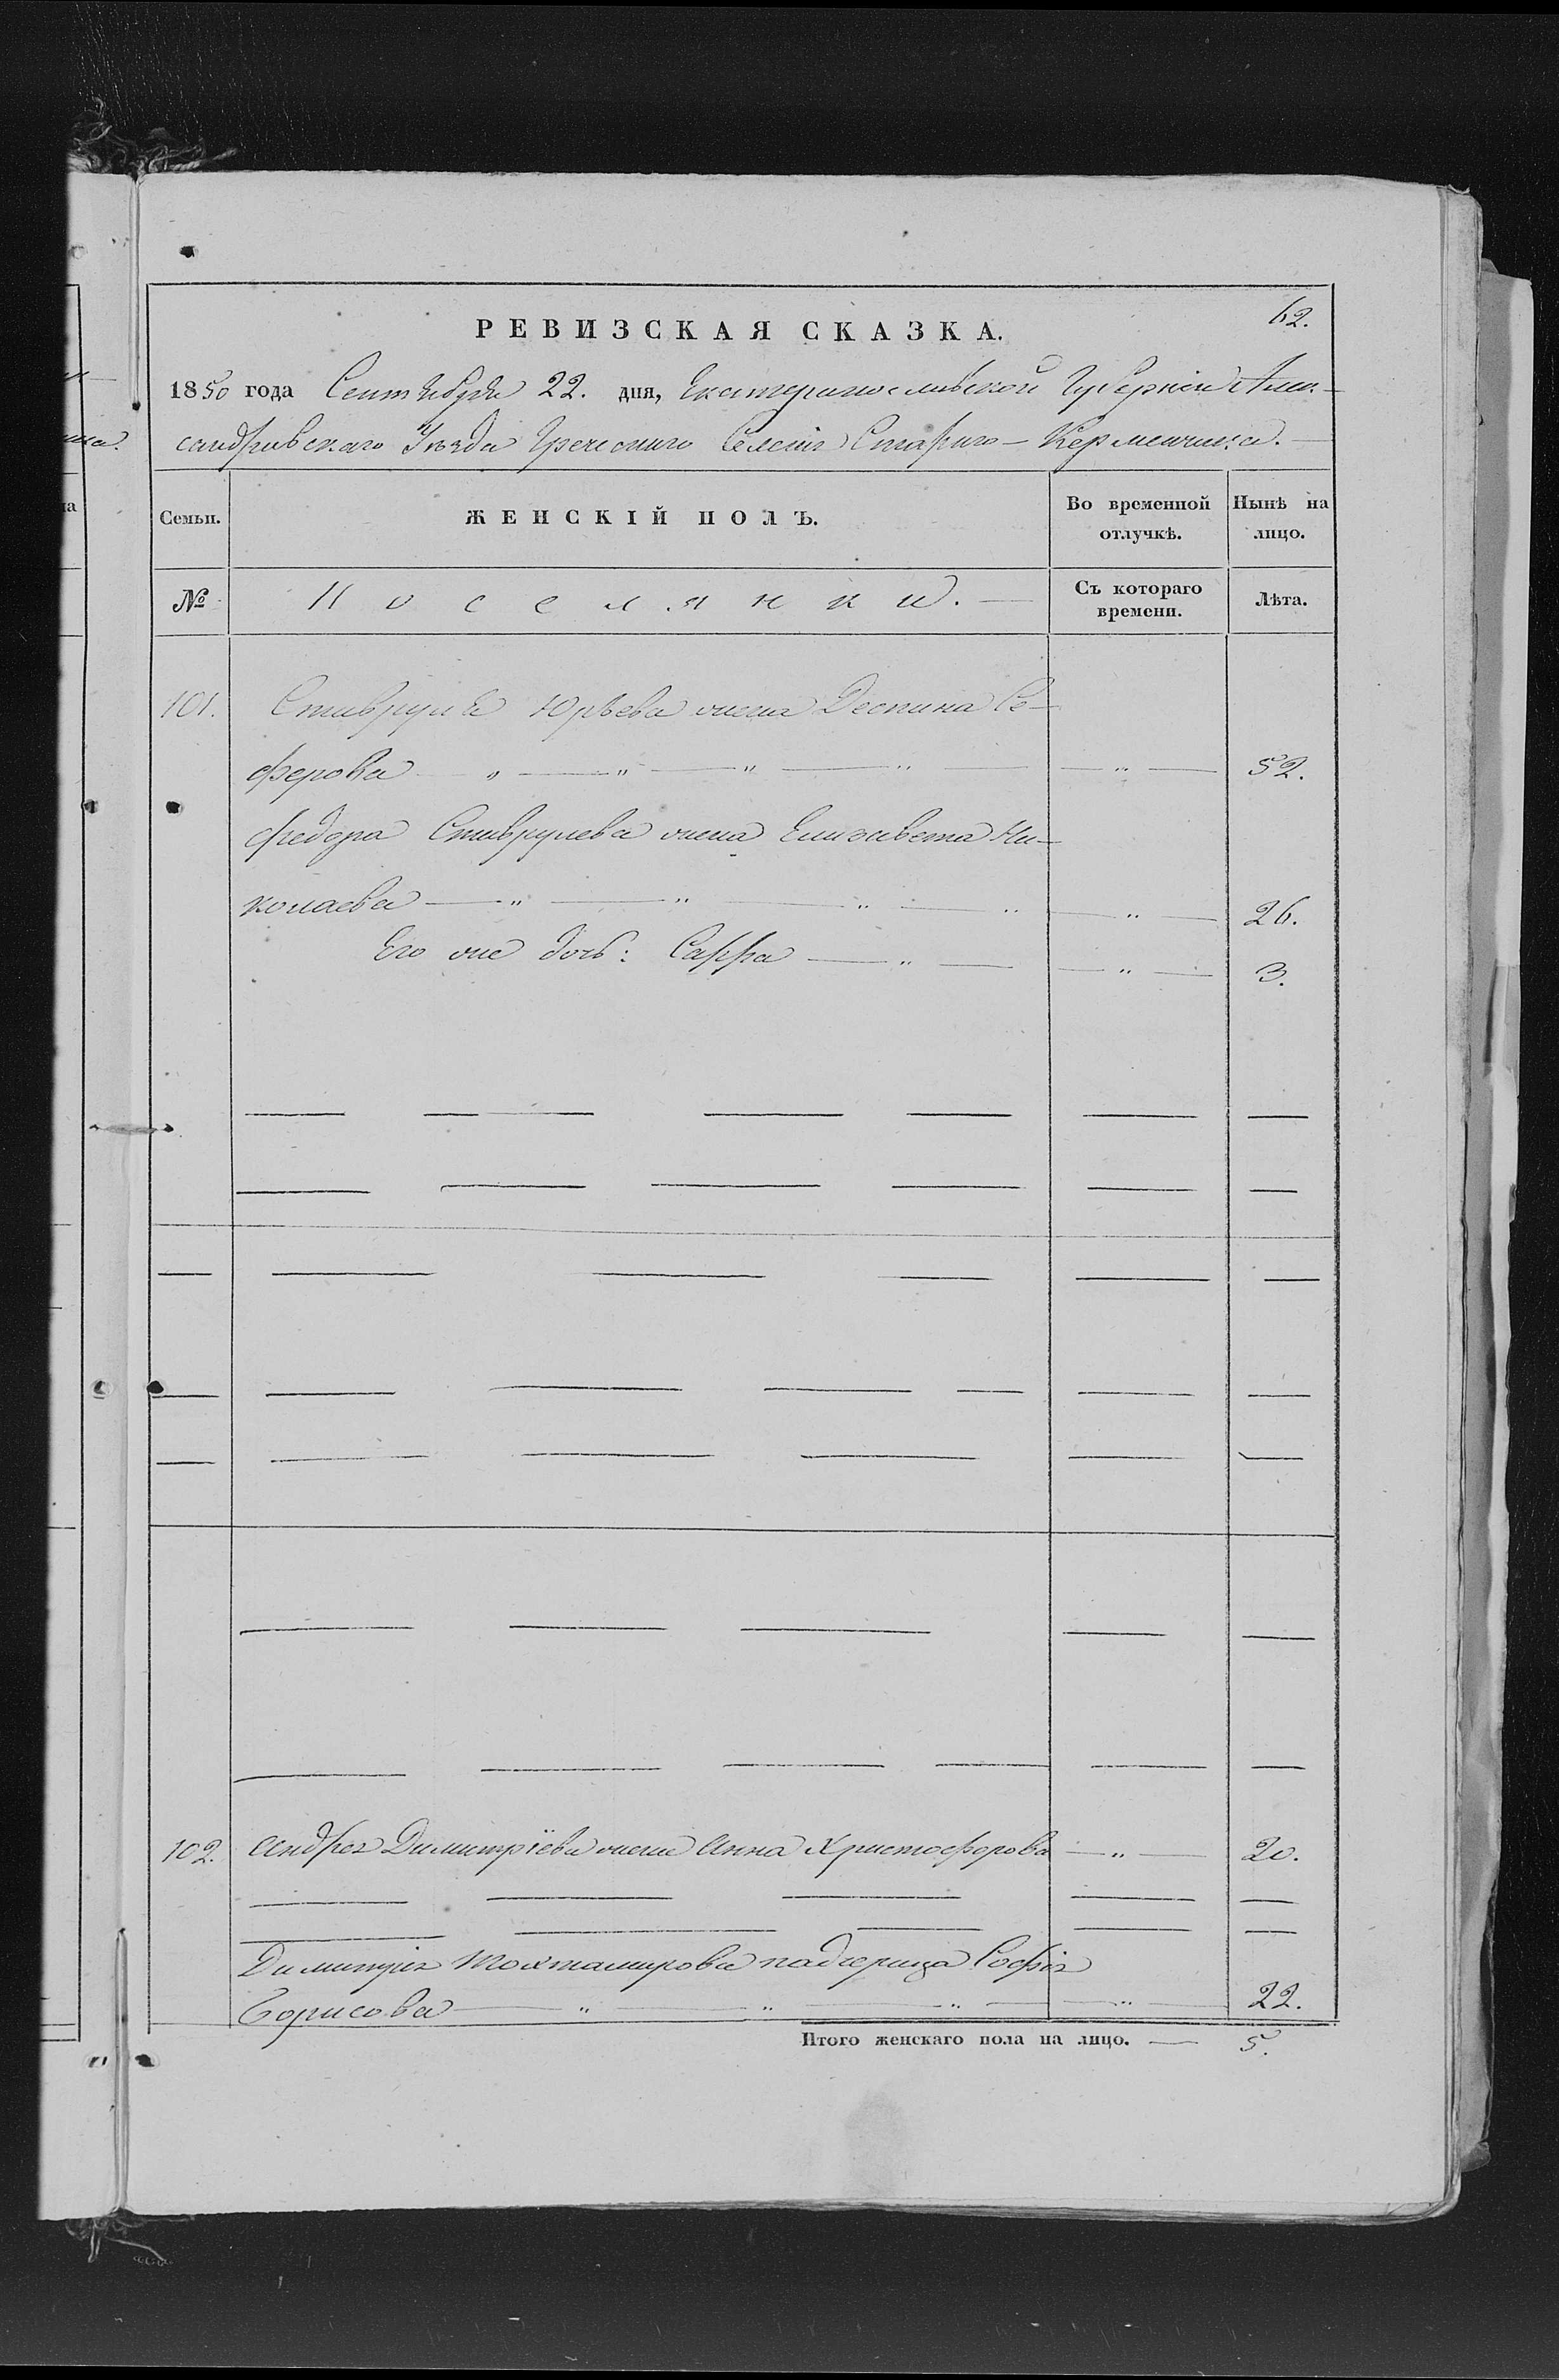 62.
РЕВИЗСКАЯ СКАЗКА.
1850 года Сентября 22. дня, Екатеринославской Губернiи Алек-
сандровскаго Уѣзда Греческаго Селенiя Стараго-Керменчика.
Семьи.
ЖЕНСКІЙ ПОЛЪ.
Во временной отлучкѣ.
Нынѣ на лицо.
№
Поселянки.
Съ котораго времени.
Лѣта.
101. Ставруля Юрьева жена Деспина Се-
ферова 52.
Федора Ставрулева жена Елизавета Ни-
колаева 26.
Его же дочь: Сарра 3.
102. Андрея Димитріева жена Анна Христофорова 20.
Димитрія Тохтамирова падчерица Софія
Борисова 22.
Итого женскаго пола на лицо. 5.